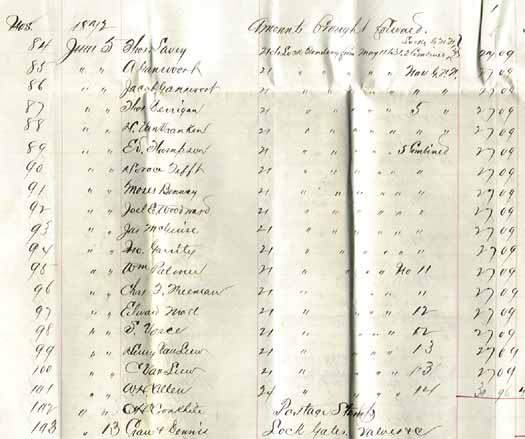 Nos. 1892 Amounts brought forward.
84 June 5 Thos Lavey 21 Lock Tending from May 11 to 31 27 09
85 " " A Gansevoort 21 " " " " " Nos 4, 21 09
86 " " Jacob Gansevoort 21 " " " " " " 27 09
87 " " Thos Gerrigan 21 " " " " " 5 " 27 09
88 " " H. Van Vranken 21 " " " " " " " 27 09
89 " " Ed. Thompson 21 " " " " " 5 Combined 27 09
90 " " Horace Tefft 21 " " " " " " 27 09
91 " " Moses 21 " " " " " " 27 09
92 " " Joel E. Woodward 21 " " " " " " 27 09
93 " " Jas McGuire 21 " " " " " " 27 09
94 " " Geo. Garrity 21 " " " " " " 27 09
95 " " Wm Palmer 21 " " " " " No 11 27 09
96 " " Chas F. Freeman 21 " " " " " " 27 09
97 " " Edward Mott 21 " " " " " 12 27 09
98 " " S. Vorce 21 " " " " " 12 27 09
99 " " Henry Van Leuw 21 " " " " " 13 27 09
100 " " C Van Leuw 21 " " " " " 13 27 09
101 " " W H Allen 24 " " " " " 14 30 96
102 " " C H Cronkhite Postage Stamps
103 " 13 Crau & Dennis Lock Gates Valves &c